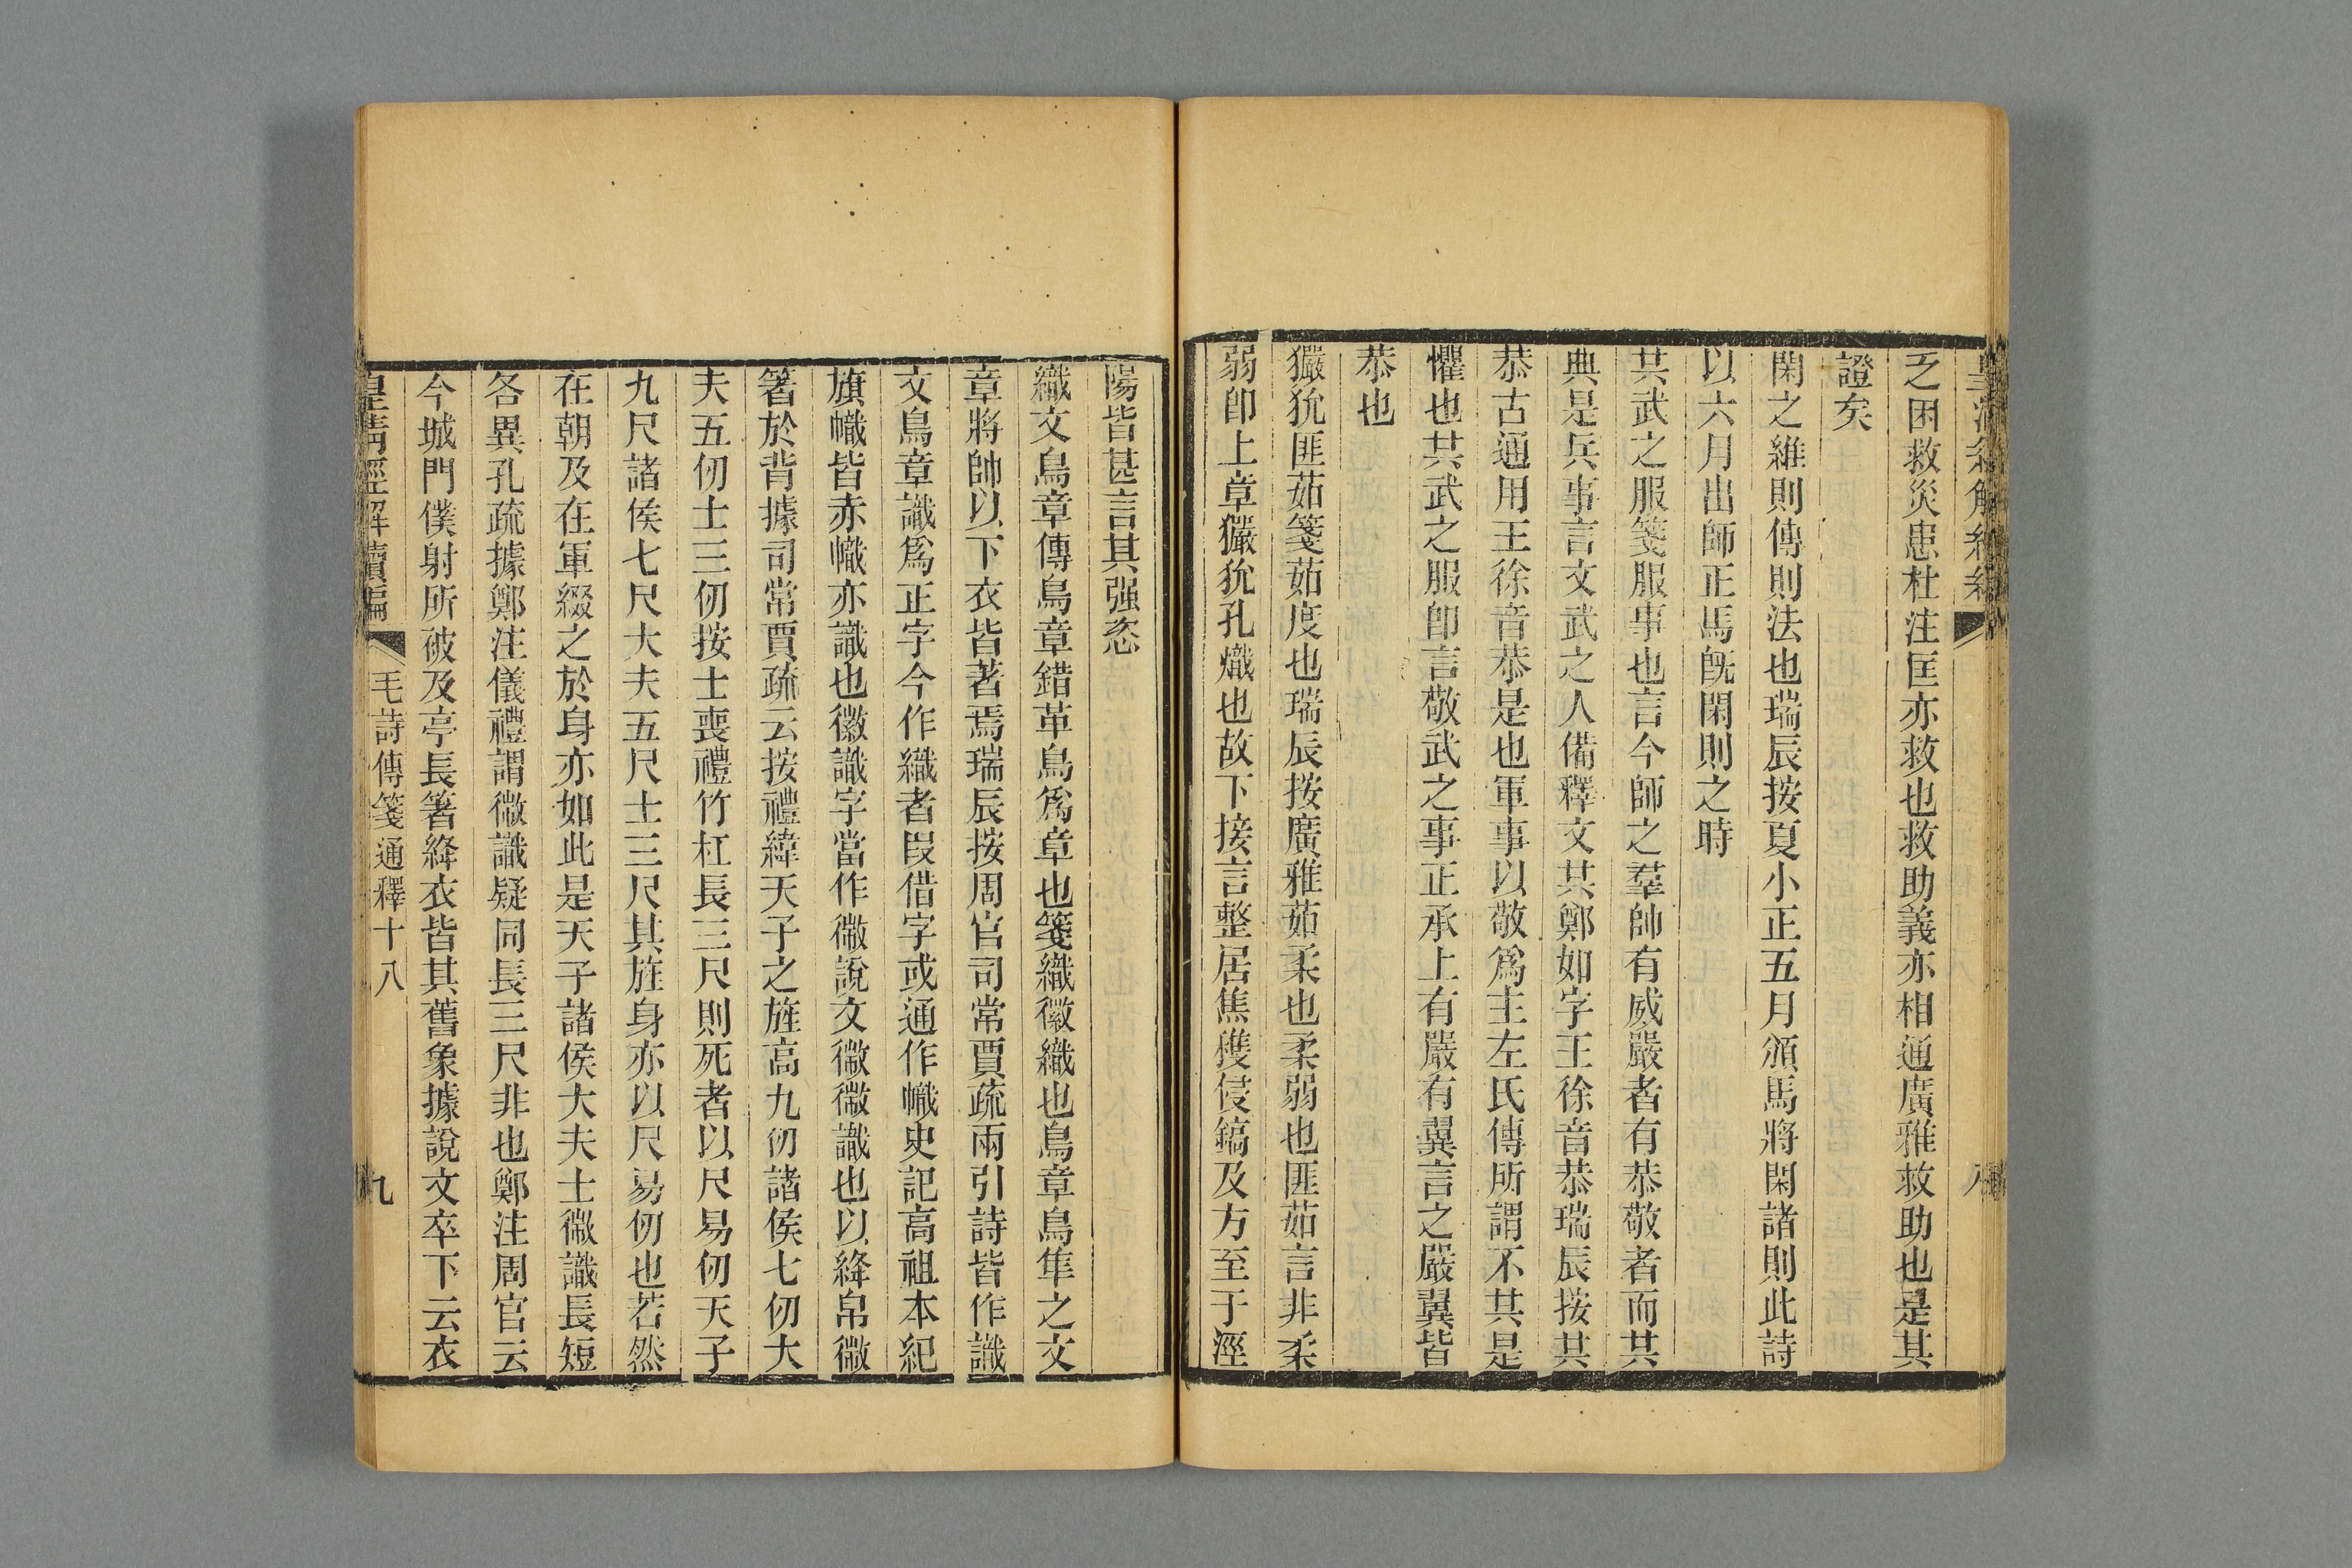 乏困救災患杜注匡亦救也救助義亦相通廣雅救助也是其
證矣
閑之維則傳則法也瑞辰按夏小正五月頒馬將閑諸則此詩
以六月出師正馬旣閑則之時
共武之服箋服事也言今師之羣帥有威嚴者有恭敬者而共
典是兵事言文武之人備釋文共鄭如字王徐音恭瑞辰按共
恭古通用王徐音恭是也軍事以敬爲主左氏傳所謂不共是
懼也共武之服卽言敬武之事正承上有嚴有翼言之嚴翼皆
恭也
玁狁匪茹箋茹度也瑞辰按廣雅茹柔也柔弱也匪茹言非柔
弱卽上章玁狁孔熾也故下接言整居焦穫侵鎬及方至于涇
陽皆甚言其强恣
織文鳥章傳鳥章錯革鳥爲章也箋織徽織也鳥章鳥隼之文
章將帥以下衣皆著焉瑞辰按周官司常賈疏兩引詩皆作識
文鳥章識爲正字今作織者叚借字或通作幟史記高祖本紀
旗幟皆赤幟亦識也徽識字當作徽說文徽徽識也以絳帛徽
箸於背據司常賈疏云按禮緯天子之旌高九仞諸侯七仞大
夫五仞士三仞按士喪禮竹杠長三尺則死者以尺易仞天子
九尺諸侯七尺大夫五尺士三尺其旌身亦以尺易仞也若然
在朝及在軍綴之於身亦如此是天子諸侯大夫士徽識長短
各異孔疏據鄭注儀禮謂徽識疑同長三尺非也鄭注周官云
今城門僕射所被及亭長箸絳衣皆其舊象據說文卒下云衣
皇淸經解續編 毛詩傳箋通釋十八 九